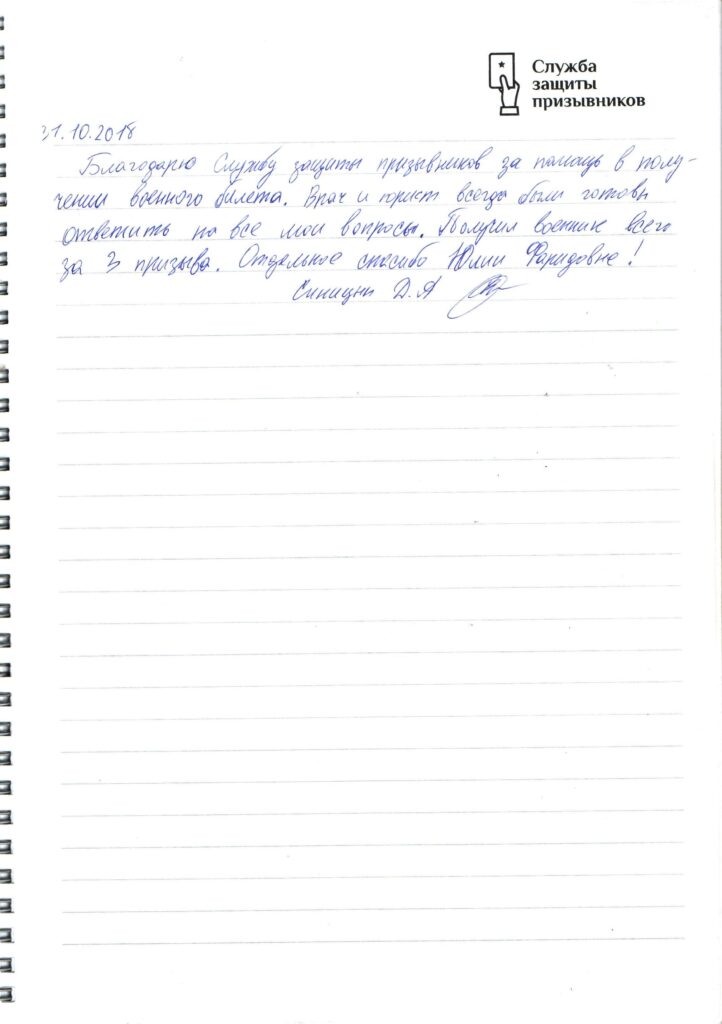 Служба
защиты
призывников
31.10.2018
Благодарю Службу защиты призывников за помощь в полу-
чении военного билета. Врач и юрист всегда были готовы
ответить на все мои вопросы. Получил военник всего
за 3 призыва. Отдельное спасибо Юлии Фаридовне!
Синицын Д.А